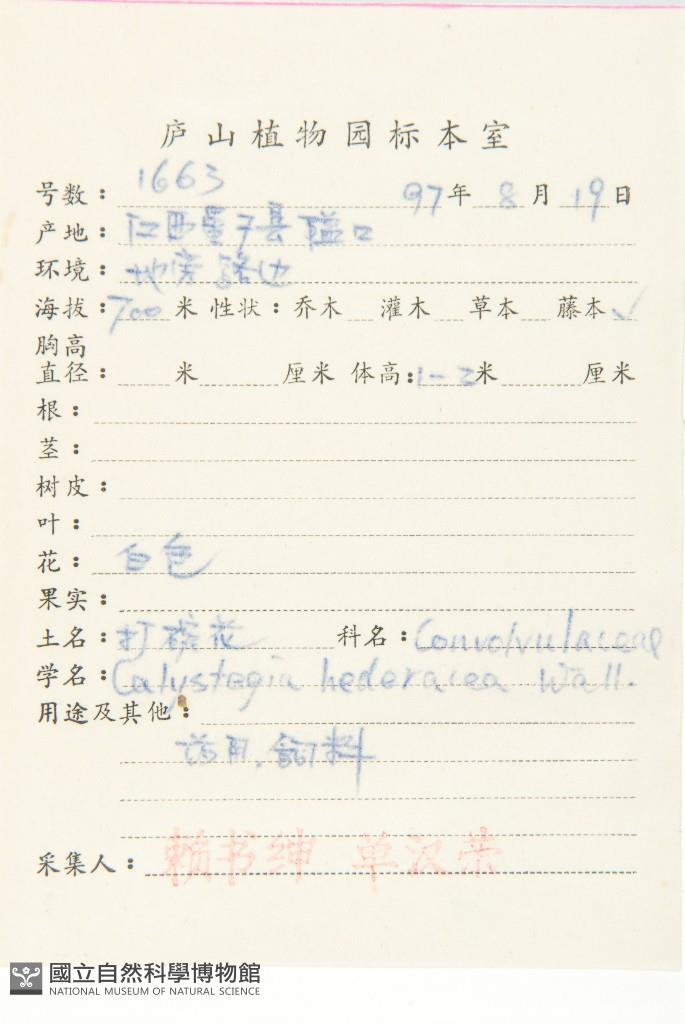 庐山植物园标本室
号数：1663 97年8月19日
产地：江西星子县隘口
环境：地旁路边
海拔：700米 性状：乔木 灌木 草本 藤本✓
胸高
直径： 米 厘米 体高：1-2米 厘米
根：
茎：
树皮：
叶：
花：白色
果实：
土名：打碗花 科名：Convolvulaceae
学名：Calystegia hederacea Wall.
用途及其他：
药用.饲料
采集人：赖书绅 单汉荣
國立自然科學博物館
NATIONAL MUSEUM OF NATURAL SCIENCE